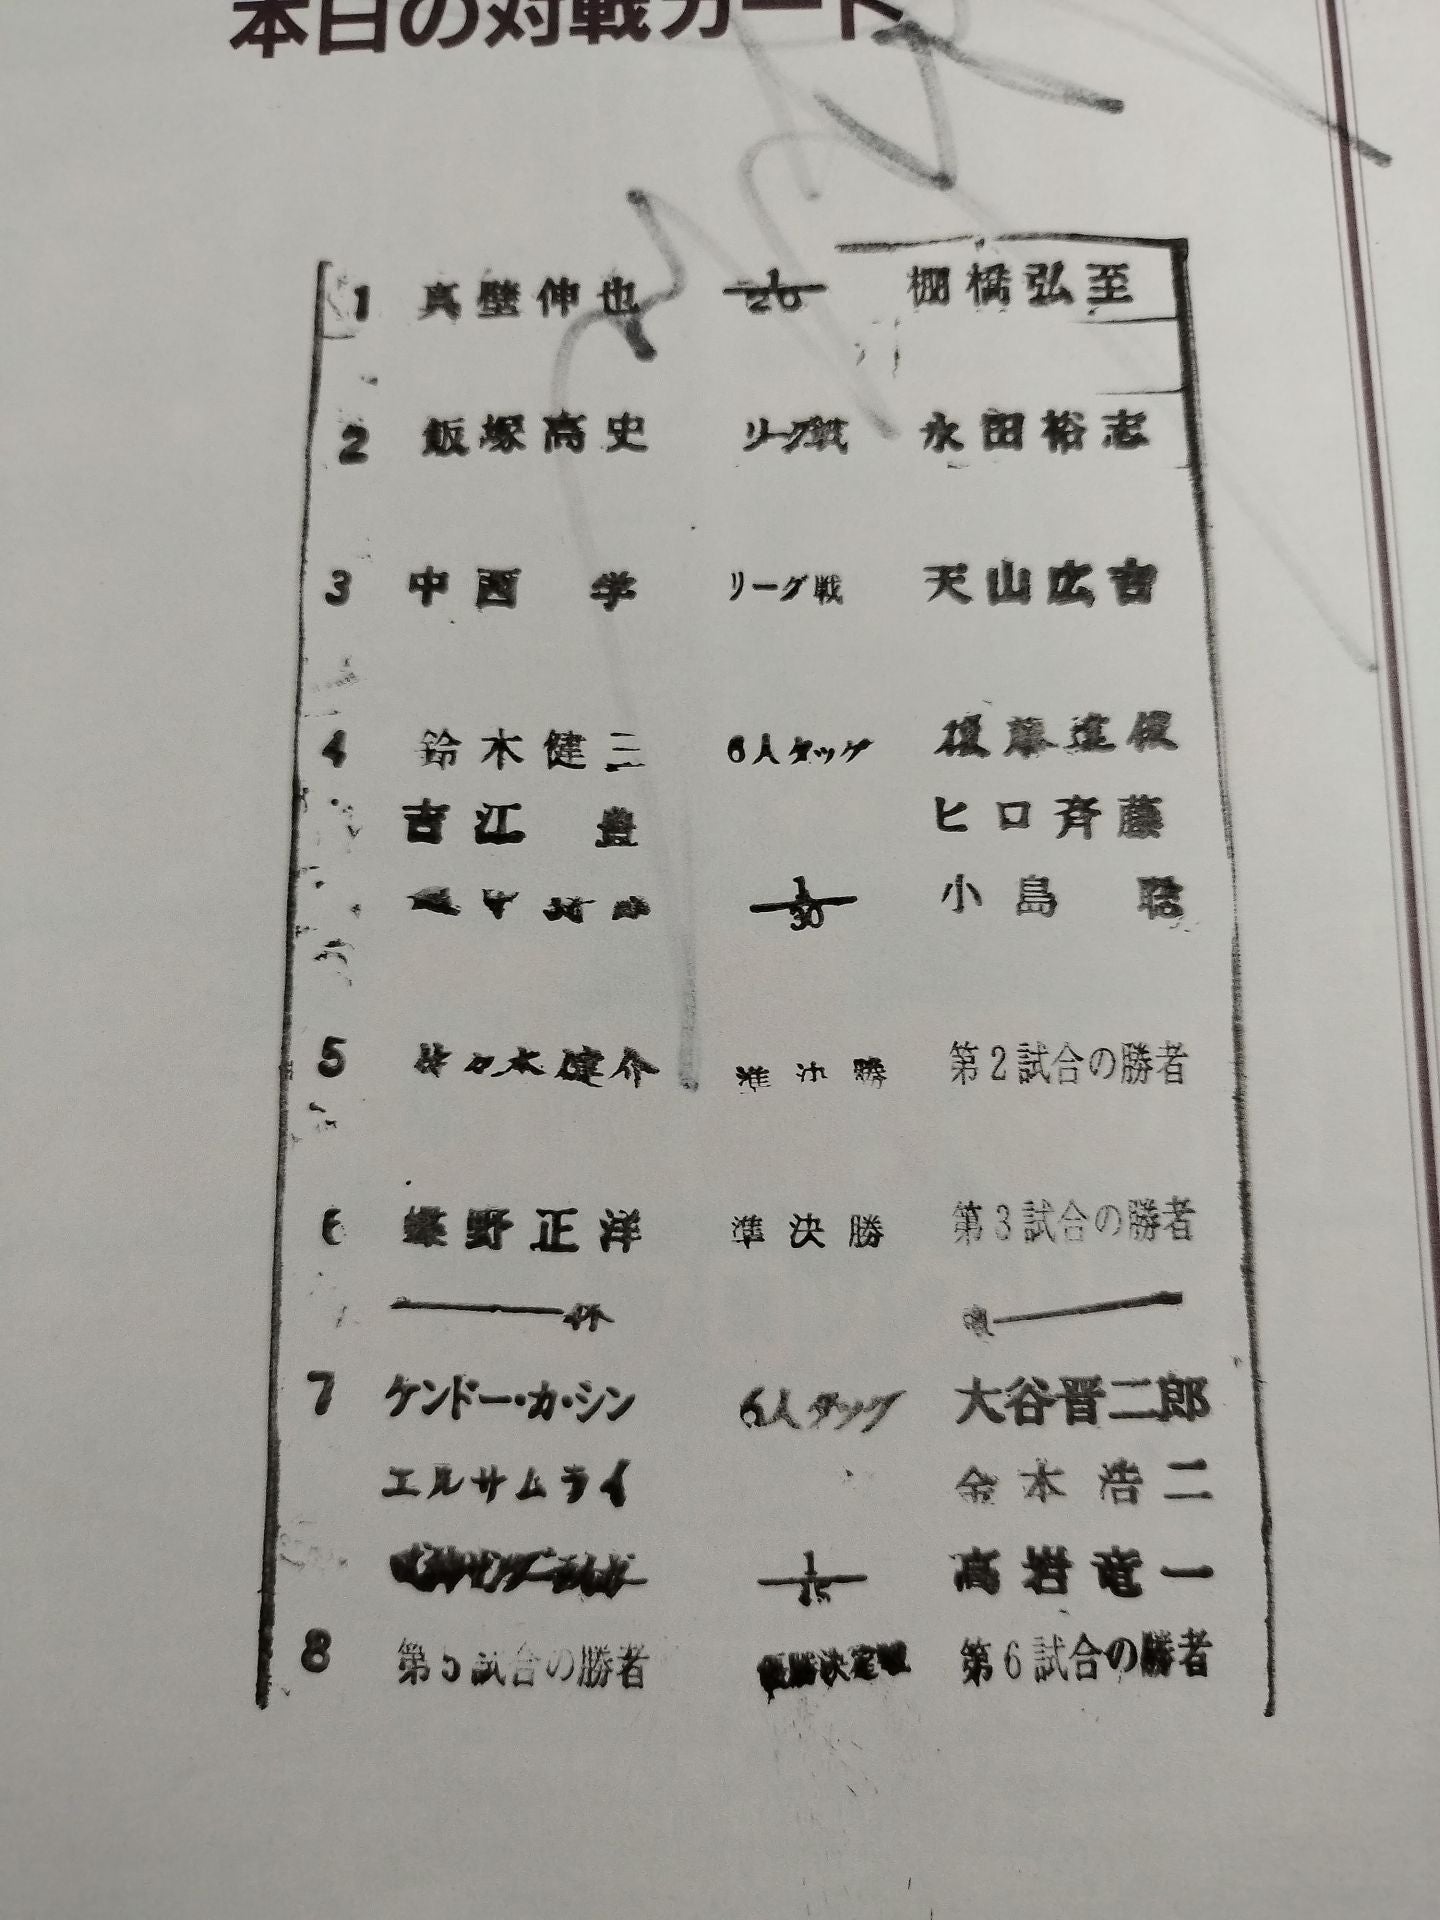 本日の対戦カード
1 真壁伸也 1/20 棚橋弘至
2 飯塚高史 リーグ戦 永田裕志
3 中西 学 リーグ戦 天山広吉
4 鈴木健三 6人タッグ 後藤達俊
吉江 豊 ヒロ斉藤
1/30 小島 聡
5 佐々木健介 準決勝 第2試合の勝者
6 蝶野正洋 準決勝 第3試合の勝者
休 憩
7 ケンドー・カ・シン 6人タッグ 大谷晋二郎
エルサムライ 金本浩二
1/45 高岩竜一
8 第5試合の勝者 優勝決定戦 第6試合の勝者